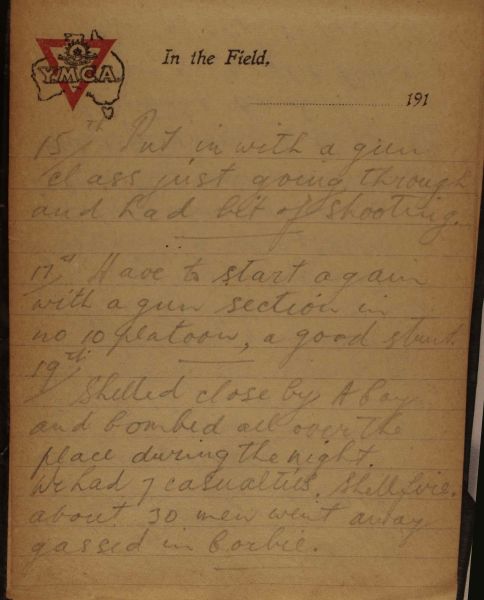 Y.M.C.A.
In the Field,
191
15th Put in with a gun
class just going through
and had bit of shooting.
17th Have to start again
with a gun section in
no 10 platoon, a good stunt.
19th
Shelled close by A Coy
and bombed all over the
place during the night.
We had 7 casualties. Shellfire.
about 30 men went away
gassed in Corbie.